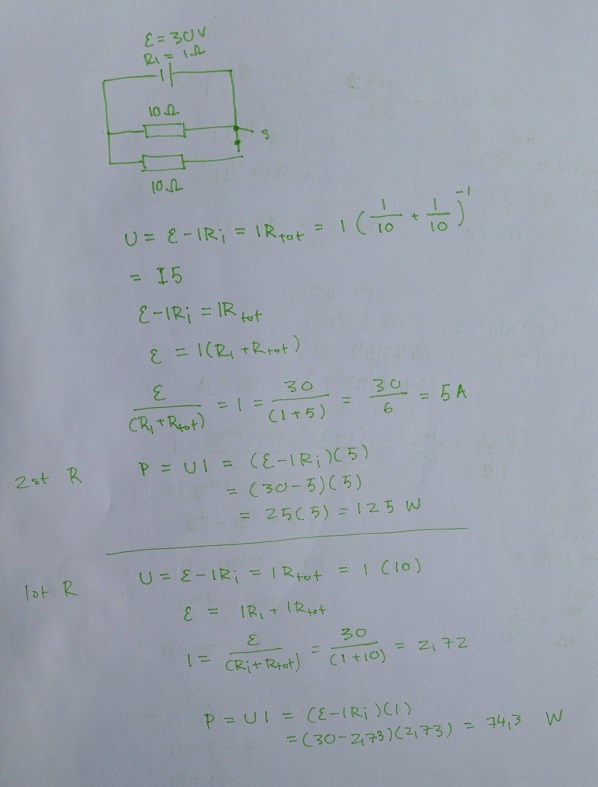 ε = 30V
R₁ = 1Ω
10 Ω
S
10 Ω
U = ε - IRᵢ = IRtot = I (1/10 + 1/10)⁻¹
= I5
ε - IRᵢ = IRtot
ε = I(Rᵢ + Rtot)
ε/(Rᵢ + Rtot) = I = 30/(1+5) = 30/6 = 5A
2st R P = UI = (ε - IRᵢ)(5)
= (30-5)(5)
= 25(5) = 125 W
1st R U = ε - IRᵢ = IRtot = I (10)
ε = IRᵢ + IRtot
I = ε/(Rᵢ + Rtot) = 30/(1+10) = 2,72
P = UI = (ε - IRᵢ)(I)
= (30-2,73)(2,73) = 74,3 W